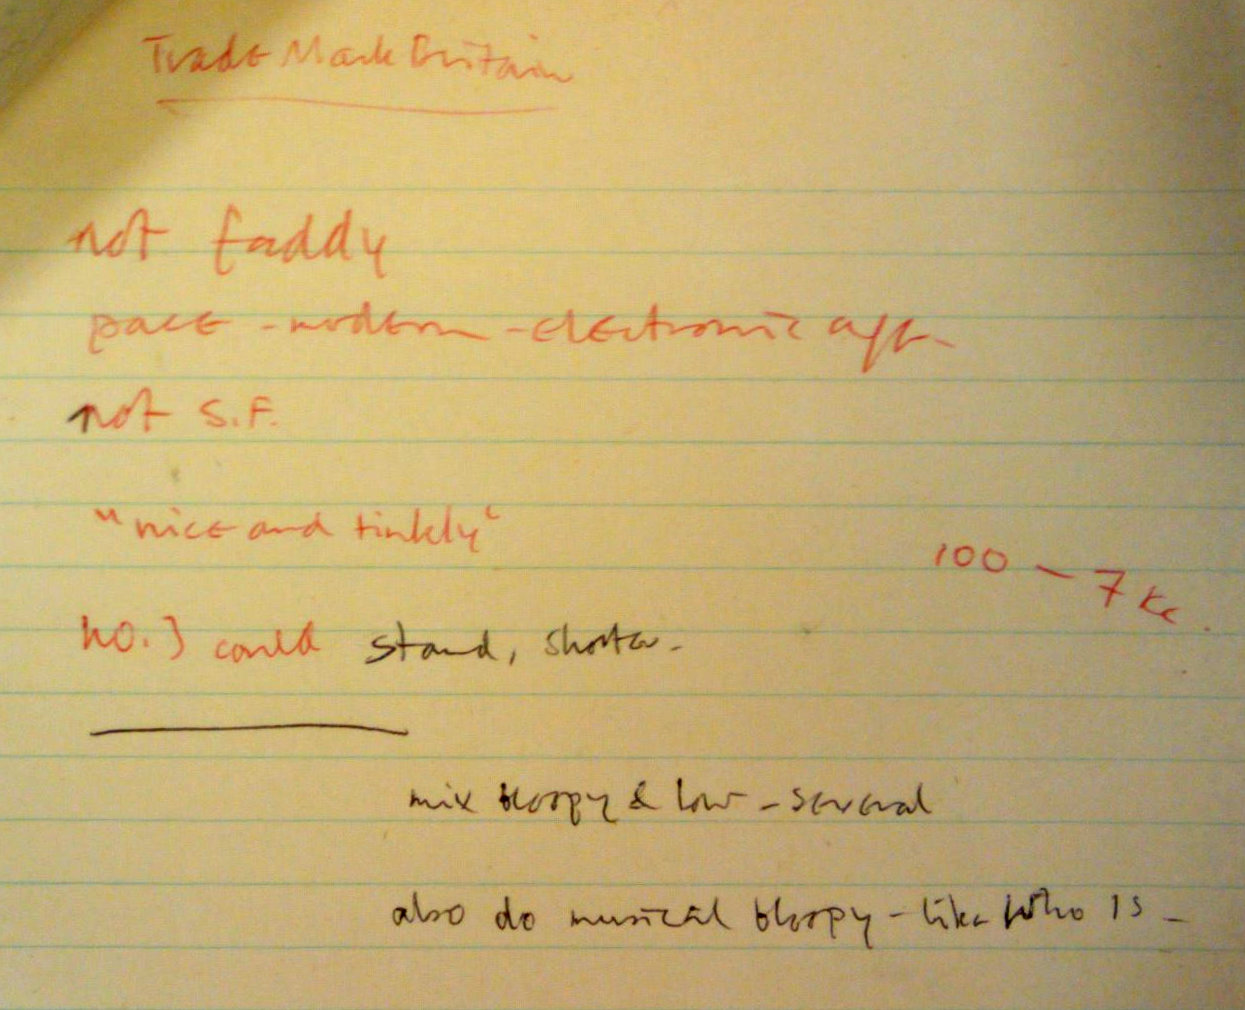 Trade Mark Britain
not faddy
pace - modern - electronic age -
not S.F.
"nice and tinkly"
100 - 7 Kc
No. 3 could stand, shorter.
mix bloopy & low - several
also do musical bloopy - like Who Is -